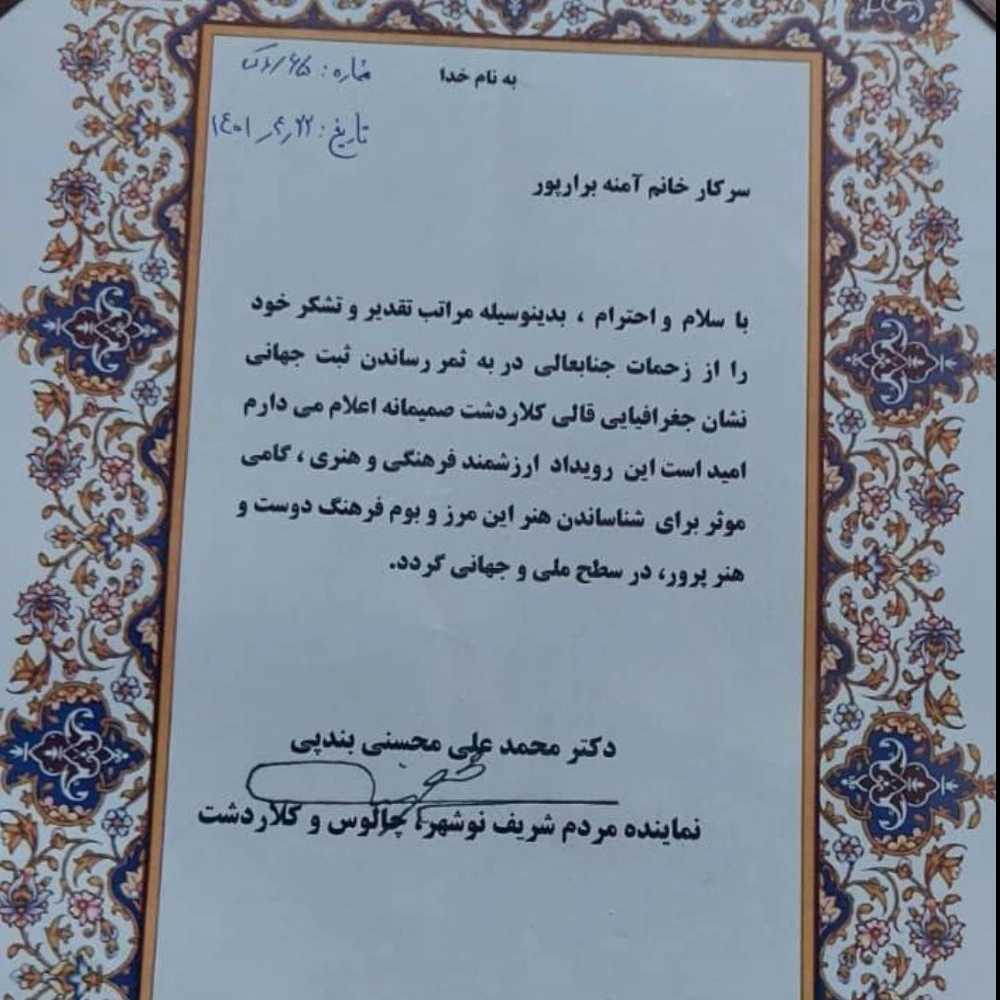 به نام خدا
شماره: ۶۱۵/
تاریخ: ۱۴۰۱
سرکار خانم آمنه برارپور
با سلام و احترام ، بدینوسیله مراتب تقدیر و تشکر خود
را از زحمات جنابعالی در به ثمر رساندن ثبت جهانی
نشان جغرافیایی قالی کلاردشت صمیمانه اعلام می دارم
امید است این رویداد ارزشمند فرهنگی و هنری ، گامی
موثر برای شناساندن هنر این مرز و بوم فرهنگ دوست و
هنر پرور، در سطح ملی و جهانی گردد.
دکتر محمد علی محسنی بندپی
نماینده مردم شریف نوشهر، چالوس و کلاردشت